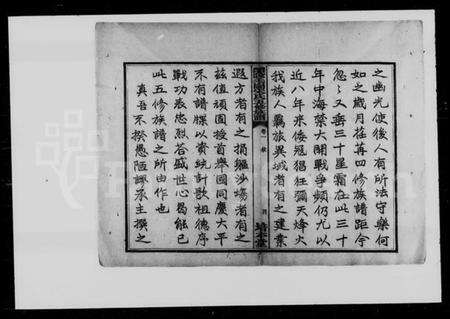 之幽光使後人有所法守樂何
如之歲月荏苒四修族譜距今
忽忽又垂三十星霜在此三十
年中海禁大開戰爭頻仍尤以
近八年來倭寇猖狂彌天烽火
我族人羈旅異域者有之建業
遐方者有之捐軀沙場者有之
茲值頑固授首舉國同慶太平
不有譜牒以資統計歌祖德序
戰功表忠烈答盛世心曷能已
此五修族譜之所由作也
真吾不揆愚陋謬承主撰之